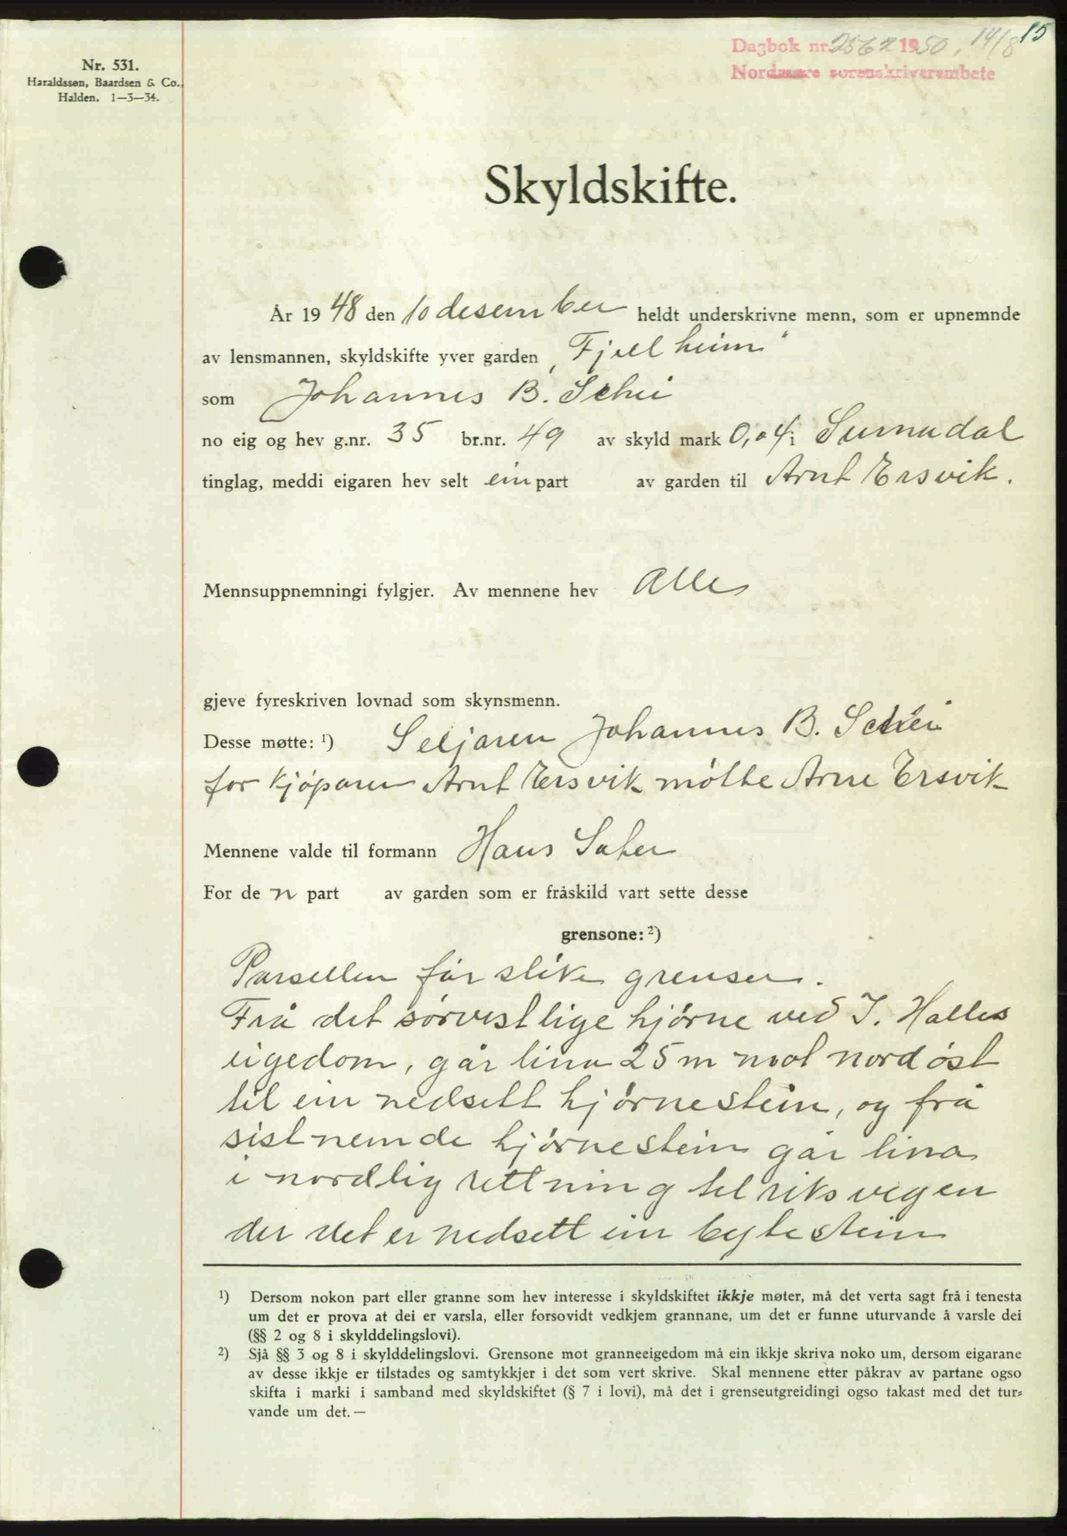 15
Dagbok nr. 2562 1950. 14/8
Nordmøre sorenskriverembete
Nr. 531.
Haraldssøn, Baardsen & Co.
Halden. 1—3—34.
Skyldskifte.
År 1948 den 10 desember heldt underskrivne menn, som er upnemnde
av lensmannen, skyldskifte yver garden „Fjellheim“
som Johannes B. Schei
no eig og hev g.nr. 35 br.nr. 49 av skyld mark 0,04 i Surnadal
tinglag, meddi eigaren hev selt ein part av garden til Arnt Ersvik.
Mennsuppnemningi fylgjer. Av mennene hev Alle
gjeve fyreskriven lovnad som skynsmenn.
Desse møtte: ¹) Seljaren Johannes B. Schei
for kjøparen Arnt Ersvik møtte Arne Ersvik
Mennene valde til formann Hans Sæter
For de n part av garden som er fråskild vart sette desse
grensone: ²)
Parsellen får slike grenser.
Frå det sørvestlige hjørne ved I. Halles
eigedom, går lina 25 m mot nordøst
til ein nedsett hjørnestein, og frå
sistnemde hjørnestein går lina
i nordlig rettning til riksvegen
der det er nedsett ein bytestein
¹) Dersom nokon part eller granne som hev interesse i skyldskiftet ikkje møter, må det verta sagt frå i tenesta
um det er prova at dei er varsla, eller forsovidt vedkjem grannane, um det er funne uturvande å varsle dei
(§§ 2 og 8 i skylddelingslovi).
²) Sjå §§ 3 og 8 i skylddelingslovi. Grensone mot granneeigedom må ein ikkje skriva noko um, dersom eigarane
av desse ikkje er tilstades og samtykkjer i det som vert skrive. Skal mennene etter påkrav av partane ogso
skifta i marki i samband med skyldskiftet (§ 7 i lovi), må det i grenseutgreidingi ogso takast med det tur-
vande um det. —